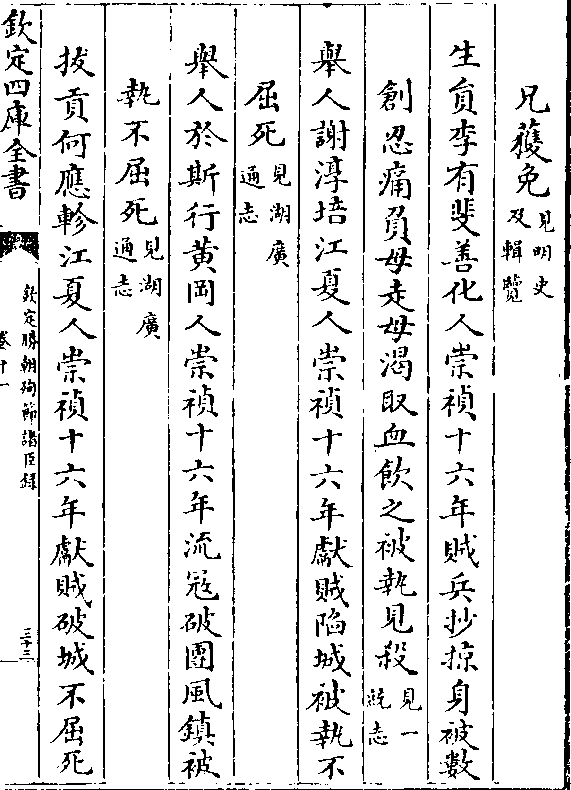 兄獲免見明史及輯覽
生員李有斐善化人崇禎十六年賊兵抄掠身被數
創忍痛負母走母渴取血飲之被執見殺見一統志
舉人謝淳培江夏人崇禎十六年獻賊陷城被執不
屈死見湖廣通志
舉人於斯行黄岡人崇禎十六年流寇破團風鎮被
執不屈死見湖廣通志
拔貢何應軫江夏人崇禎十六年獻賊破城不屈死
欽定四庫全書
欽定勝朝殉節諸臣録
卷十一
三十三